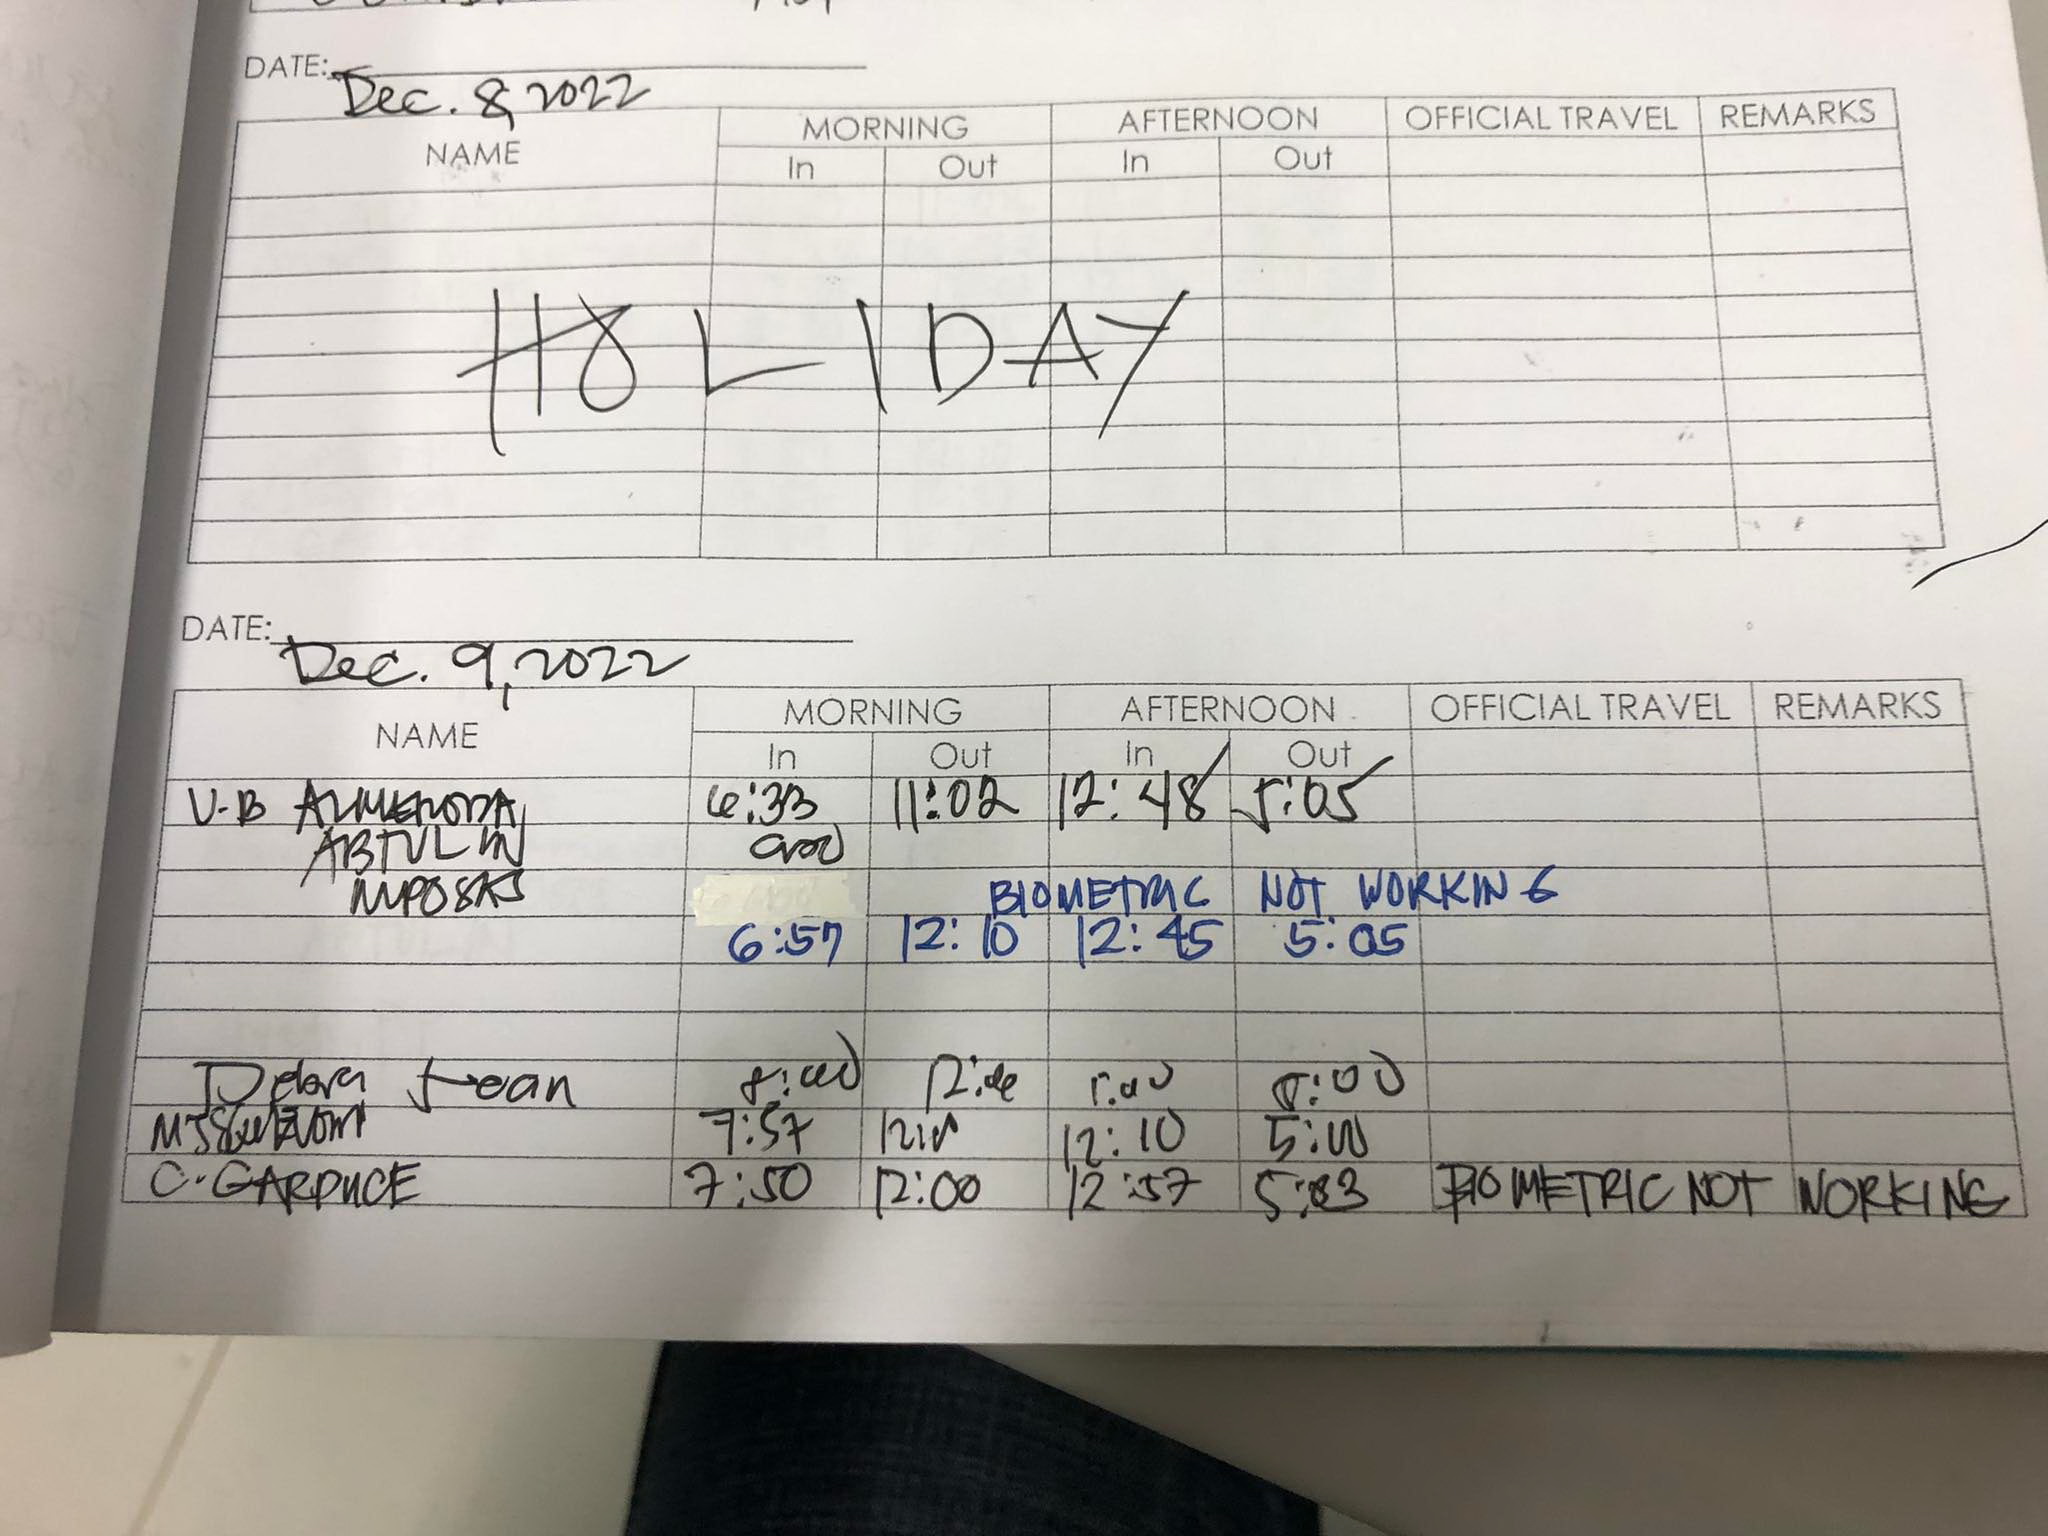 DATE: Dec. 8, 2022
NAME MORNING AFTERNOON OFFICIAL TRAVEL REMARKS
In Out In Out
HOLIDAY
DATE: Dec. 9, 2022
NAME MORNING AFTERNOON OFFICIAL TRAVEL REMARKS
In Out In Out
V-B 6:33 11:02 12:48 5:05
BIOMETRIC NOT WORKING
6:57 12:10 12:45 5:05
Debra Jean 8:00 5:00
7:57 12:10 5:00
C. GARDUCE 7:50 12:00 12:57 5:03 BIOMETRIC NOT WORKING